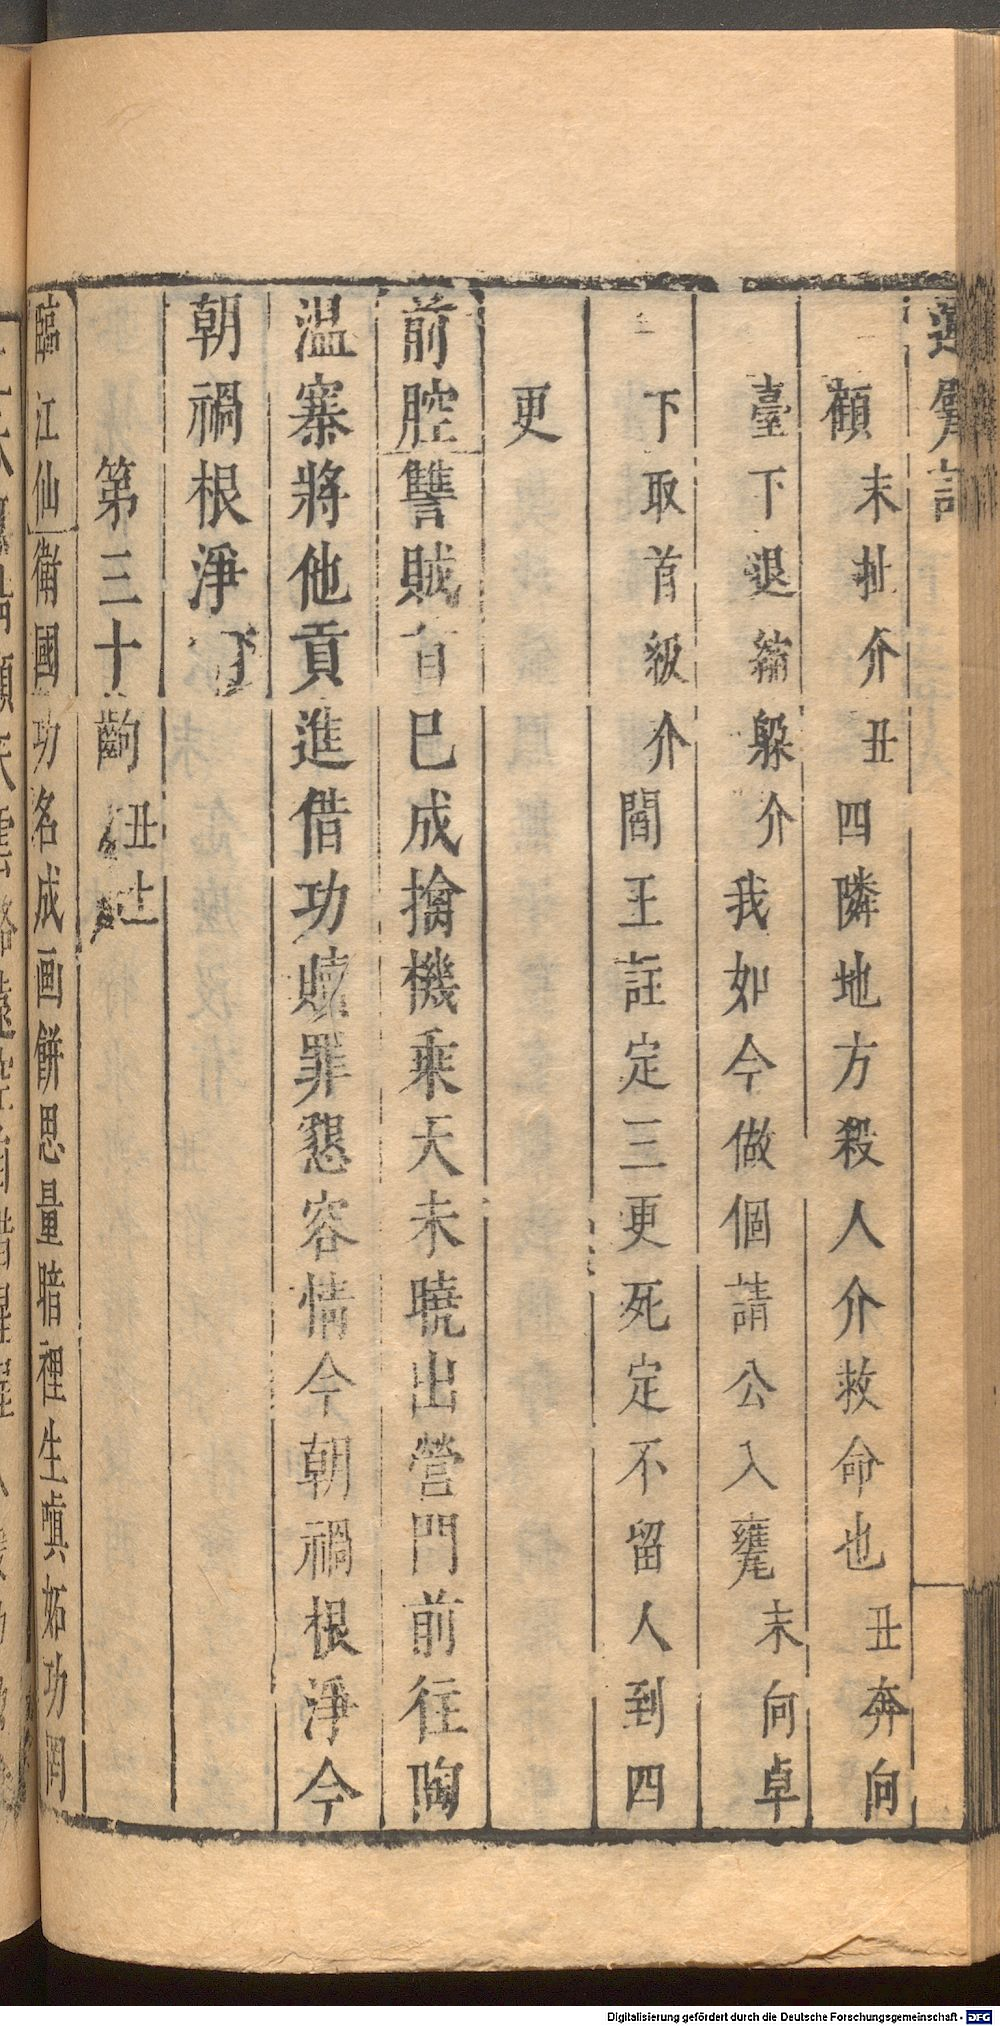 顧末扯介丑四隣地方殺人介救命也丑奔向
臺下退縮躱介我如今做個請公入甕末向卓
下取首級介閻王註定三更死定不留人到四
更
前腔讐賊首已成擒機乘天未曉出營門前往陶
溫寨將他貢進借功贖罪懇容情今朝禍根淨今
朝禍根淨
第三十齣丑上
臨江仙衛國功名成画餅思量暗裡生嗔妬功罔
Digitalisierung gefördert durch die Deutsche Forschungsgemeinschaft - DFG